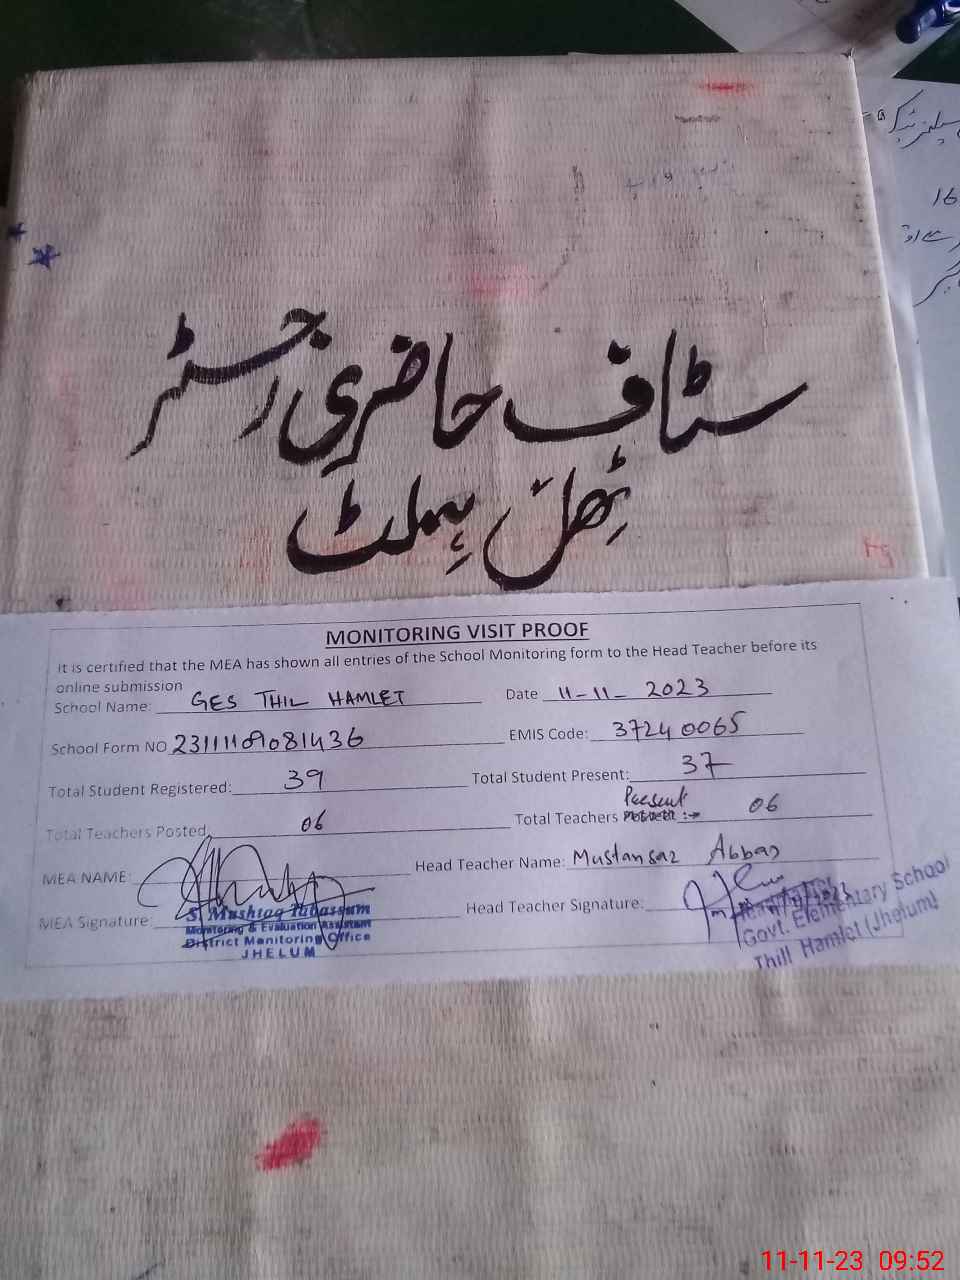 سٹاف حاضری رجسٹر
ٹھل ہملٹ
MONITORING VISIT PROOF
It is certified that the MEA has shown all entries of the School Monitoring form to the Head Teacher before its
online submission
School Name: GES THIL HAMLET Date 11-11-2023
School Form NO 23111109081436 EMIS Code: 37240065
Total Student Registered: 39 Total Student Present: 37
Total Teachers Posted 06 Total Teachers Present :- 06
MEA NAME: Head Teacher Name: Mustansar Abbas
MEA Signature: Head Teacher Signature:
S. Mushtaq Tabassum
Monitoring & Evaluation Assistant
District Monitoring Office
JHELUM
Govt. Elementary School
Thill Hamlet (Jhelum)
16
11-11-23 09:52